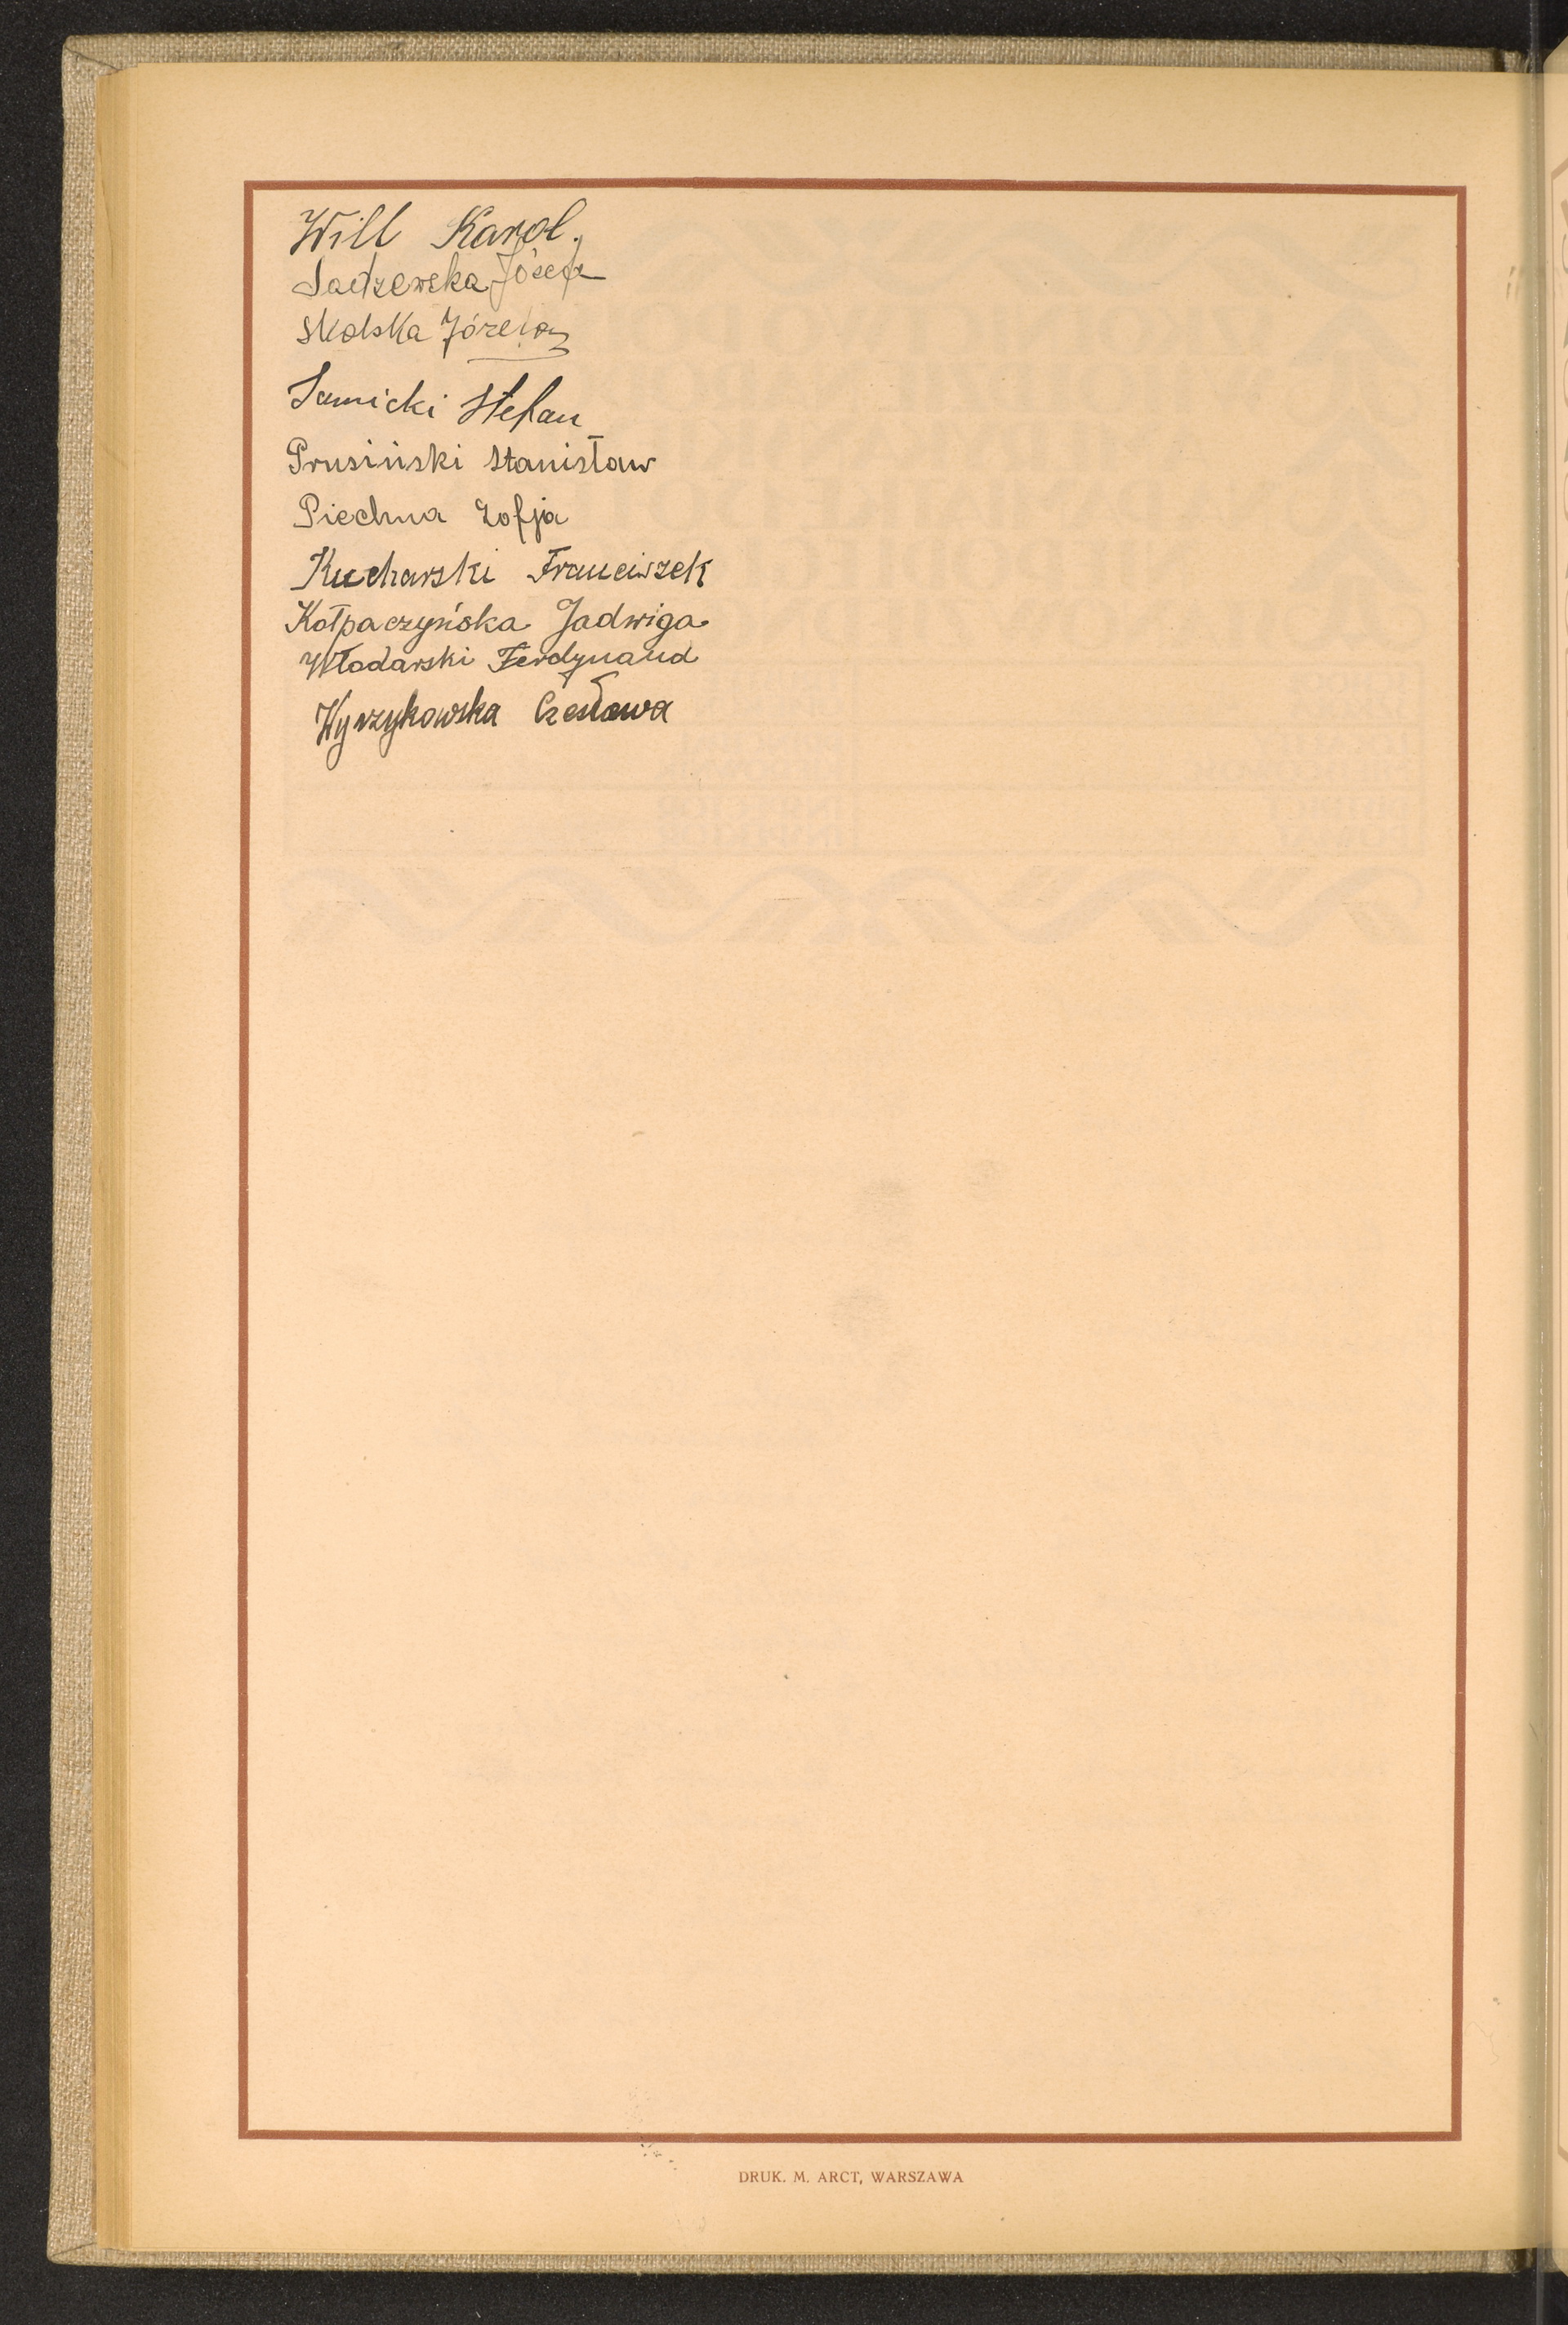 Will Karol.
Sadzewska Józefa
Skolska Józefa
Samicki Stefan
Prusiński Stanisław
Piechna Zofja
Kucharski Franciszek
Kołpaczyńska Jadwiga
Włodarski Ferdynand
Wyrzykowska Czesława
DRUK. M. ARCT, WARSZAWA